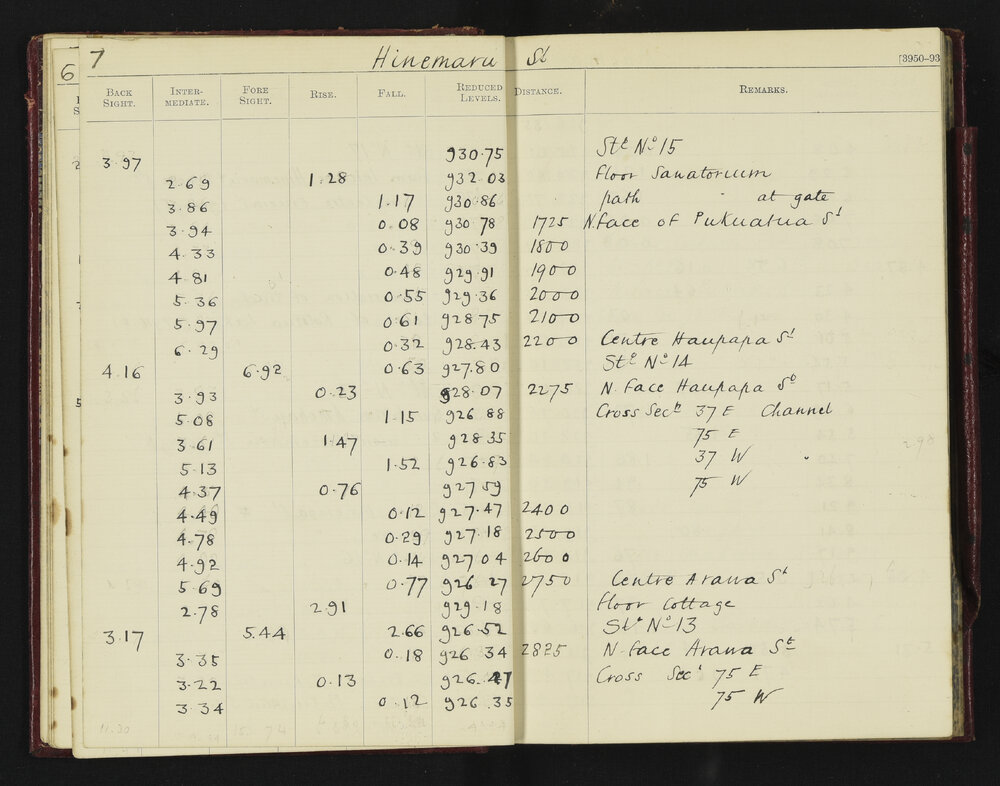 6
7 Hinemaru St
[3950–93
BACK SIGHT. INTER-MEDIATE. FORE SIGHT. RISE. FALL. REDUCED LEVELS. DISTANCE. REMARKS.
3.97 930.75 Stn No 15
2.69 1.28 932.03 Floor Sanatorium
3.86 1.17 930.86 path " at gate
3.94 0.08 930.78 1725 N. face of Pukuatua St
4.33 0.39 930.39 1800
4.81 0.48 929.91 1900
5.36 0.55 929.36 2000
5.97 0.61 928.75 2100
6.29 0.32 928.43 2200 Centre Haupapa St
4.16 6.92 0.63 927.80 Stn No 14
3.93 0.23 928.07 2275 N. face Haupapa St
5.08 1.15 926.88 Cross Sectn 37 E Channel
3.61 1.47 928.35 75 E
5.13 1.52 926.83 37 W "
4.37 0.76 927.59 75 W
4.49 0.12 927.47 2400
4.78 0.29 927.18 2500
4.92 0.14 927.04 2600
5.69 0.77 926.27 2750 Centre Arawa St
2.78 2.91 929.18 Floor Cottage
3.17 5.44 2.66 926.52 Stn No 13
3.35 0.18 926.34 2825 N. face Arawa St
3.22 0.13 926.47 Cross Sect 75 E
3.34 0.12 926.35 75 W